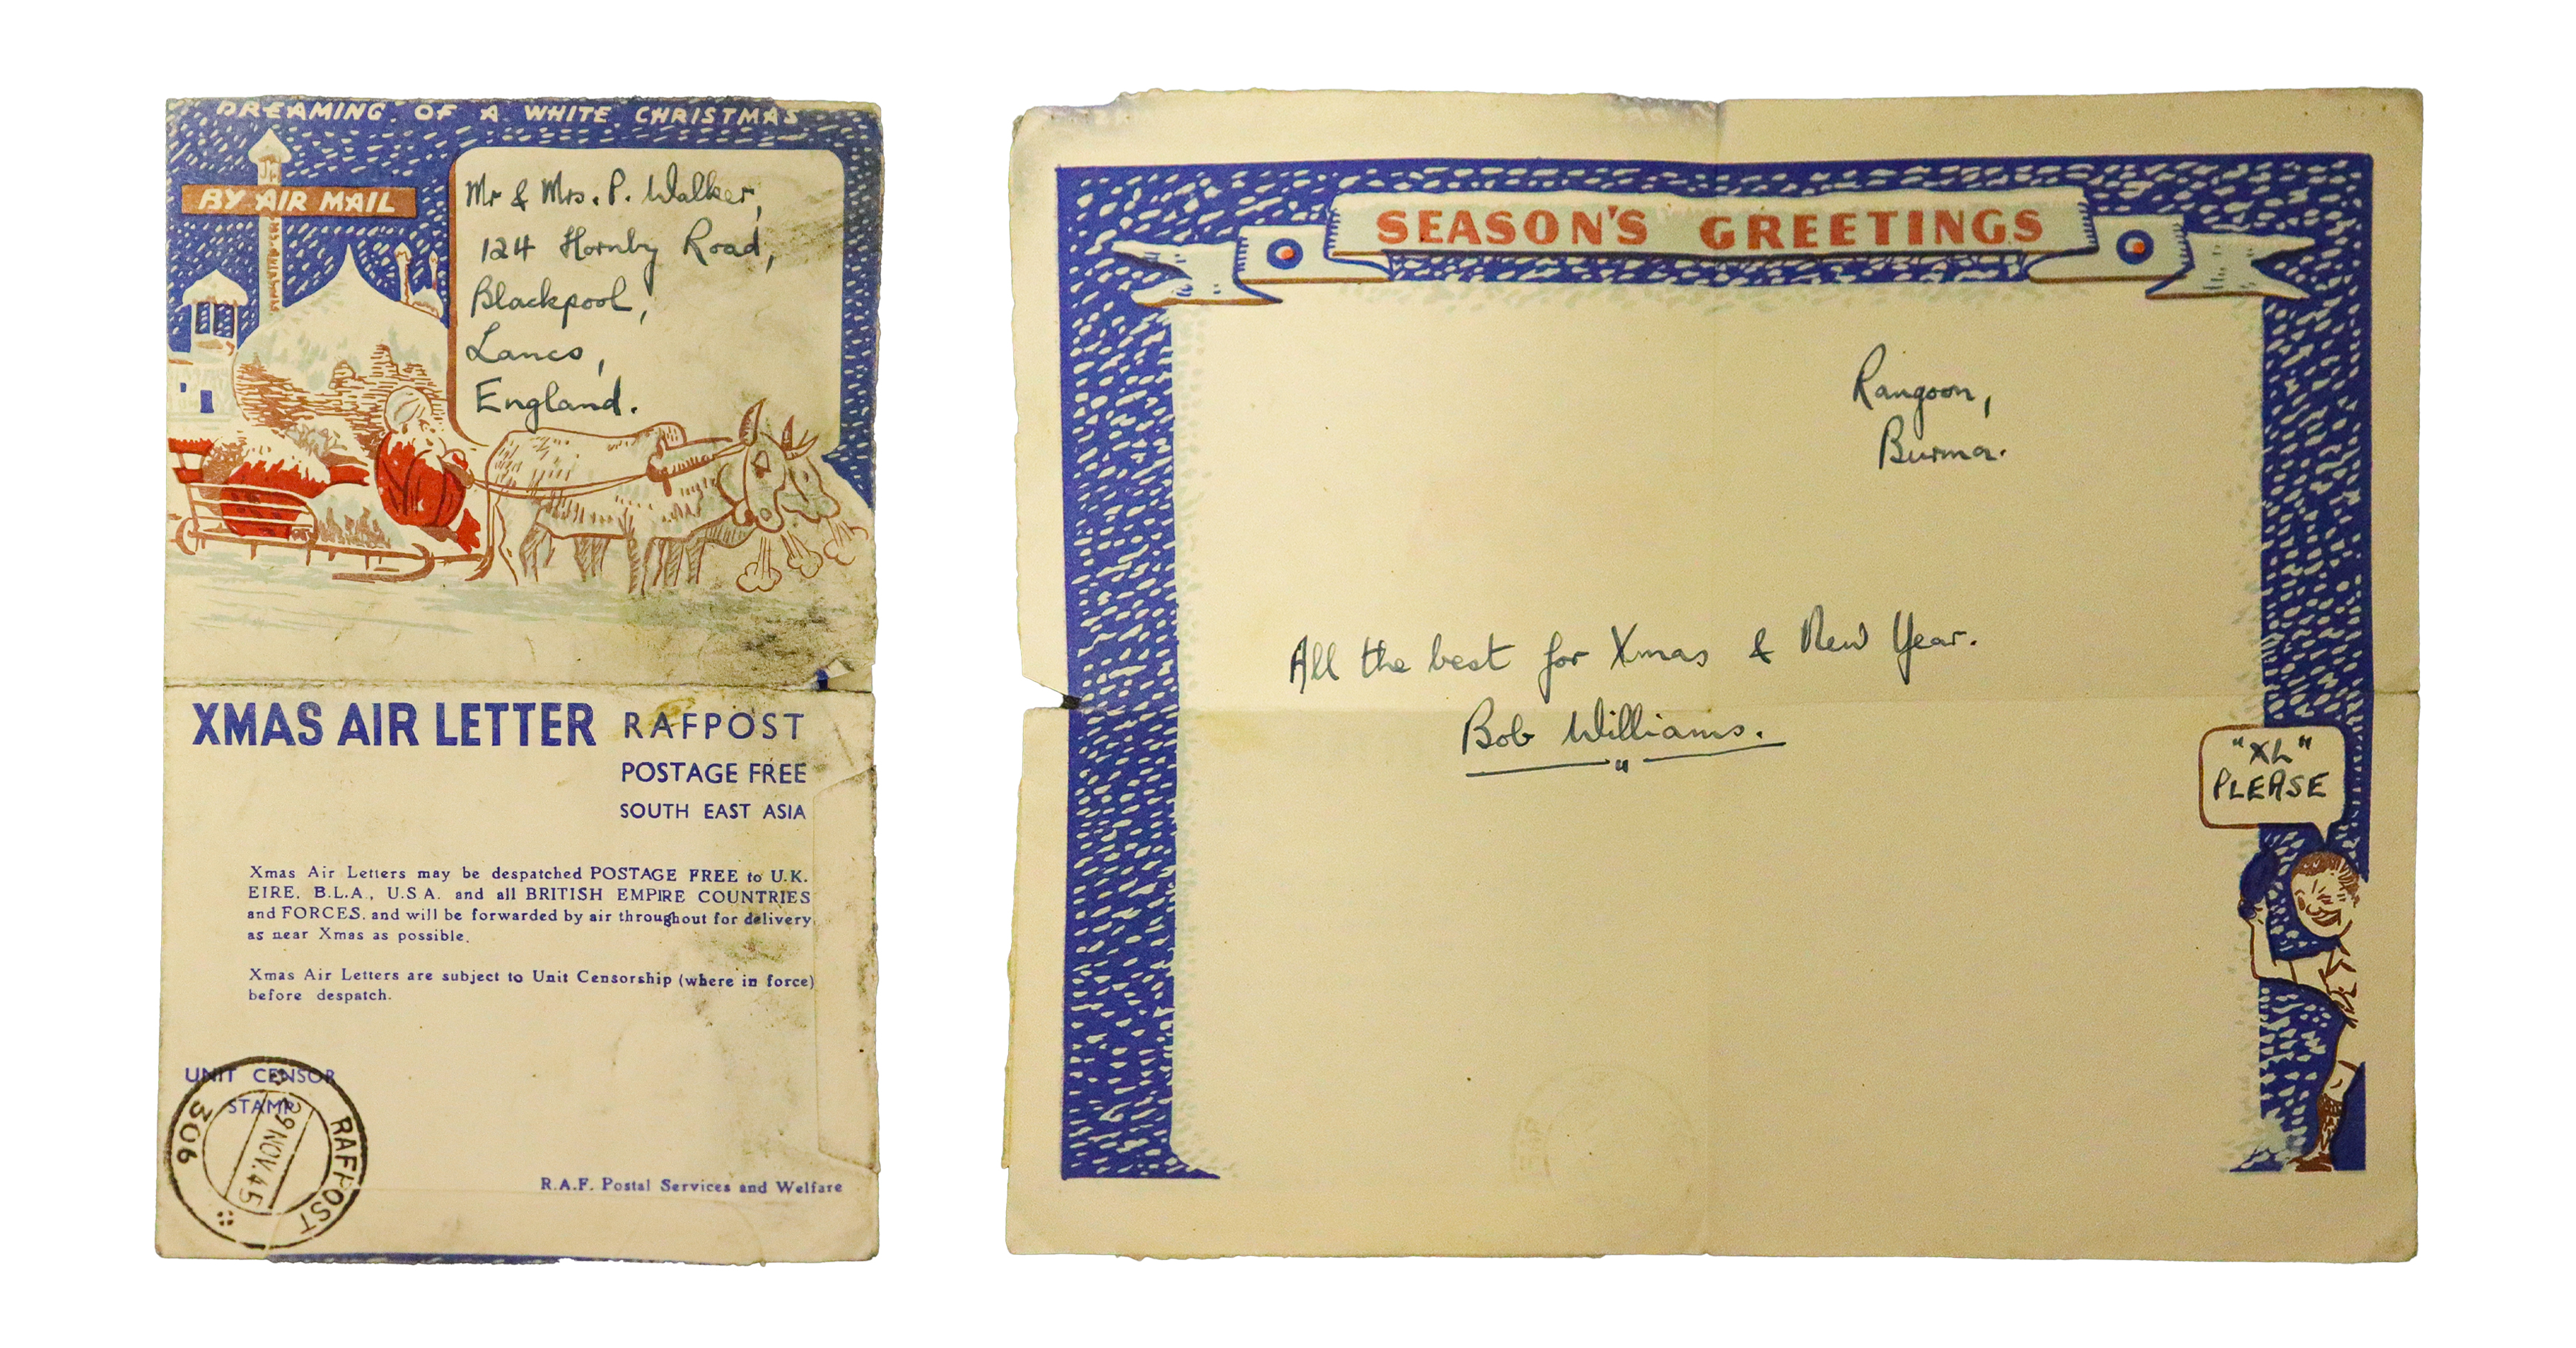 DREAMING OF A WHITE CHRISTMAS
BY AIR MAIL
Mr & Mrs. P. Walker,
124 Hornby Road,
Blackpool,
Lancs,
England.
XMAS AIR LETTER RAFPOST
POSTAGE FREE
SOUTH EAST ASIA
Xmas Air Letters may be despatched POSTAGE FREE to U.K.
EIRE, B.L.A., U.S.A. and all BRITISH EMPIRE COUNTRIES
and FORCES, and will be forwarded by air throughout for delivery
as near Xmas as possible.
Xmas Air Letters are subject to Unit Censorship (where in force)
before despatch.
UNIT CENSOR
STAMP
RAFPOST
306
29 NOV. 45
R.A.F. Postal Services and Welfare
SEASON'S GREETINGS
Rangoon,
Burma.
All the best for Xmas & New Year.
Bob Williams.
"XL"
PLEASE